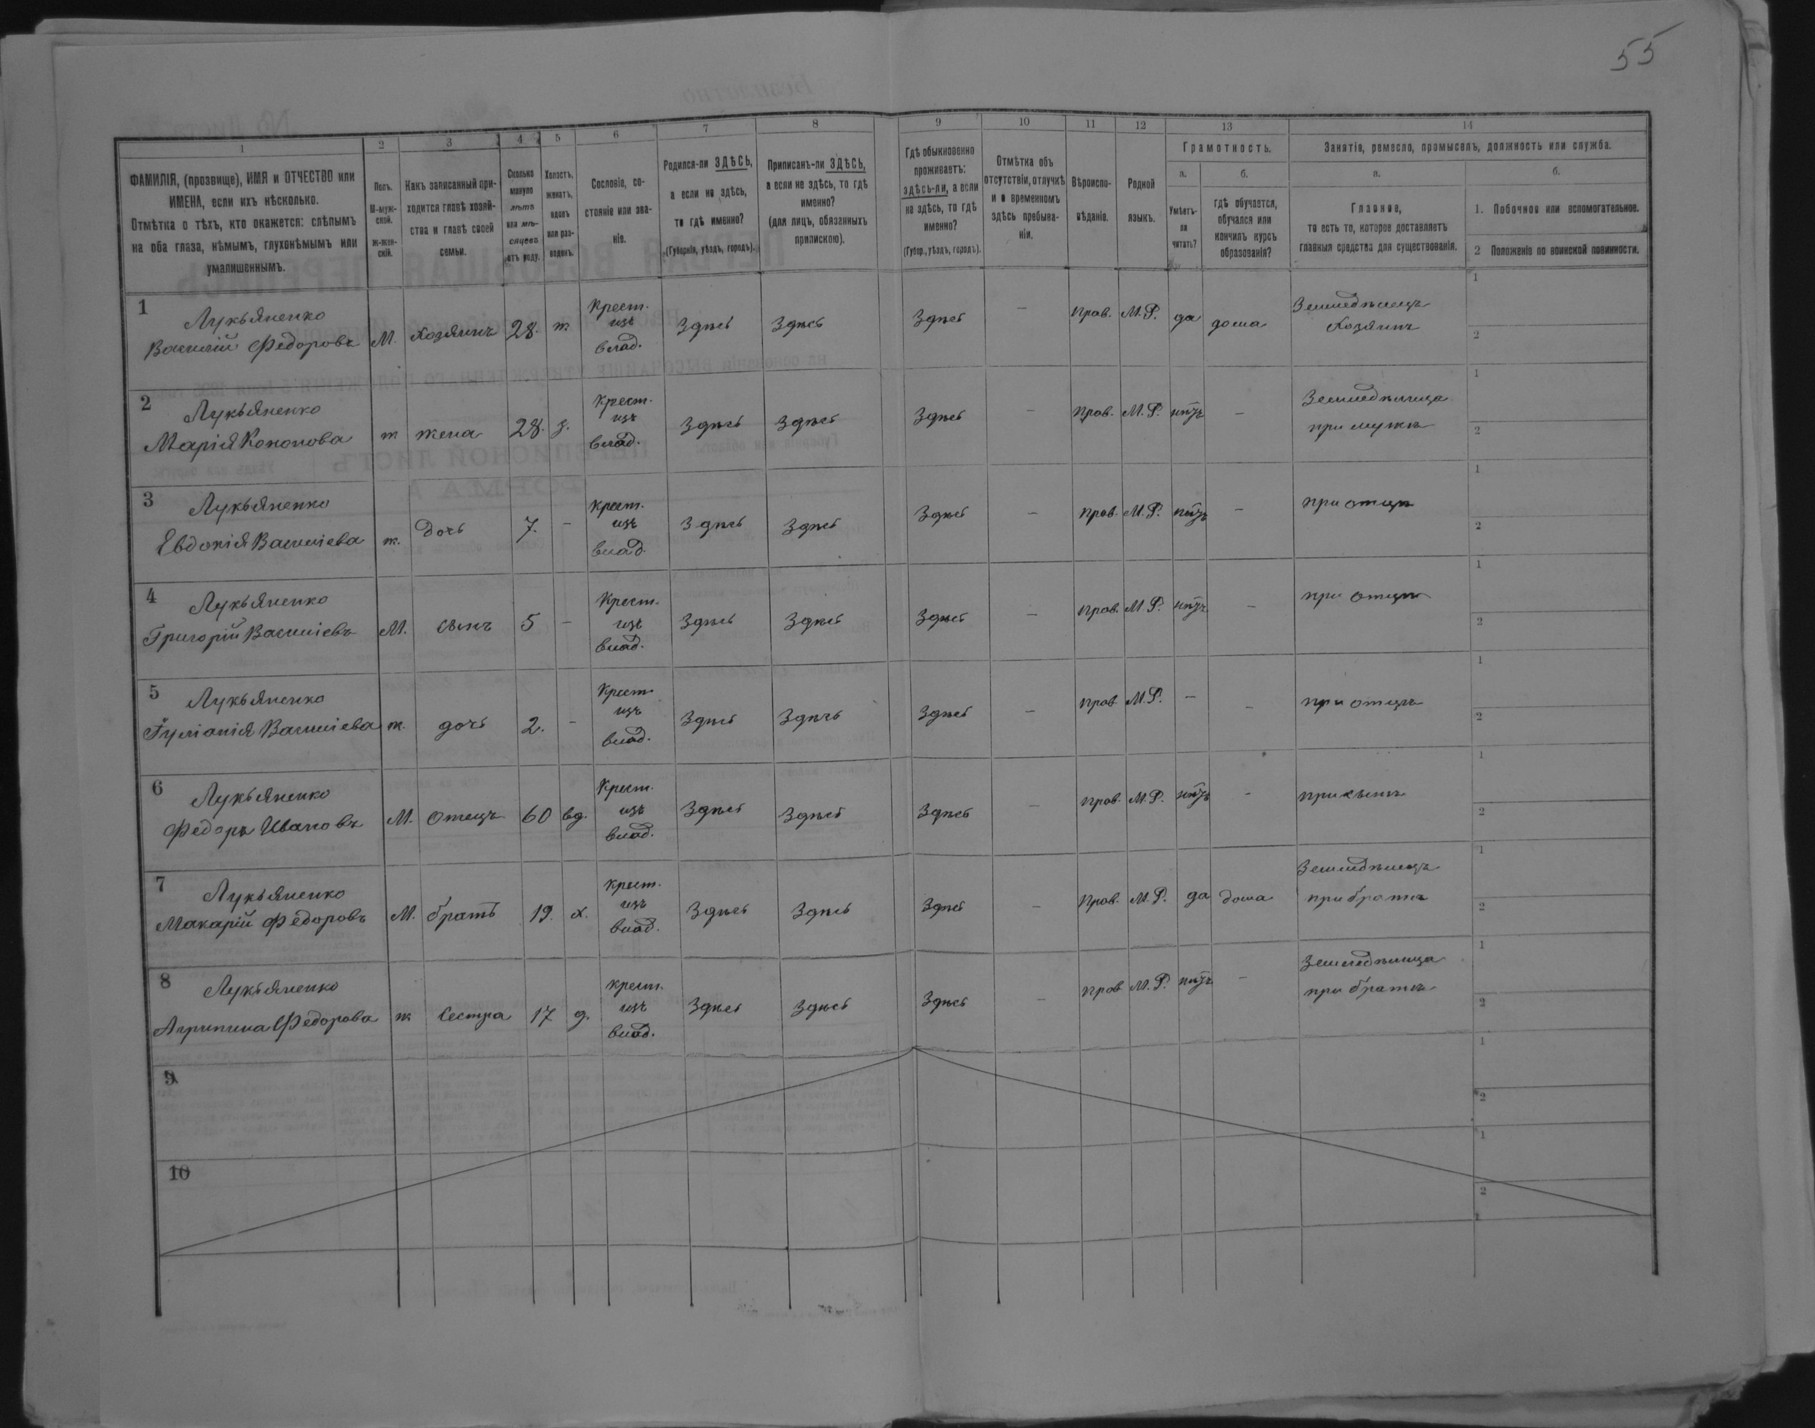 55
1 2 3 4 5 6 7 8 9 10 11 12 13 14
ФАМИЛІЯ, (прозвище), ИМЯ и ОТЧЕСТВО или
ИМЕНА, если ихъ нѣсколько.
Отмѣтка о тѣхъ, кто окажется: слѣпымъ
на оба глаза, нѣмымъ, глухонѣмымъ или
умалишеннымъ.
Полъ.
М-муж-
ской.
ж-жен-
скій.
Какъ записанный при-
ходится главѣ хозяй-
ства и главѣ своей
семьи.
Сколько
минуло
лѣтъ
или мѣ-
сяцевъ
отъ роду.
Холостъ,
женатъ,
вдовъ
или раз-
веденъ.
Сословіе, со-
стояніе или зва-
ніе.
Родился-ли ЗДѢСЬ,
а если не здѣсь,
то гдѣ именно?
(Губернія, уѣздъ, городъ).
Приписанъ-ли ЗДѢСЬ,
а если не здѣсь, то гдѣ
именно?
(для лицъ, обязанныхъ
припискою).
Гдѣ обыкновенно
проживаетъ:
здѣсь-ли, а если
не здѣсь, то гдѣ
именно?
(Губер., уѣздъ, городъ).
Отмѣтка объ
отсутствіи, отлучкѣ
и о временномъ
здѣсь пребыва-
ніи.
Вѣроиспо-
вѣданіе.
Родной
языкъ.
Грамотность.
а.
Умѣетъ-
ли
читать?
б.
гдѣ обучается,
обучался или
кончилъ курсъ
образованія?
Занятіе, ремесло, промыселъ, должность или служба.
а.
Главное,
то есть то, которое доставляетъ
главныя средства для существованія.
б.
1. Побочное или вспомогательное.
2 Положеніе по воинской повинности.
1 Лукьяненко
Василій Федоровъ М. хозяинъ 28. ж. Крест. изъ влад. Здѣсь Здѣсь Здѣсь — Прав. М.Р. да дома Земледѣлецъ Хозяинъ 1 2
2 Лукьяненко
Марія Кононова ж жена 28. з. Крест. изъ влад. Здѣсь Здѣсь Здѣсь — Прав. М.Р. нѣтъ — Земледѣлица при мужѣ 1 2
3 Лукьяненко
Евдокія Василіева ж. дочь 7. — Крест. изъ влад. Здѣсь Здѣсь Здѣсь — Прав. М.Р. нѣтъ — при отцѣ 1 2
4 Лукьяненко
Григорій Василіевъ М. сынъ 5 — Крест. изъ влад. Здѣсь Здѣсь Здѣсь — Прав. М.Р. нѣтъ — при отцѣ 1 2
5 Лукьяненко
Іуліанія Василіева ж. дочь 2. — Крест. изъ влад. Здѣсь Здѣсь Здѣсь — Прав М.Р. — — при отцѣ 1 2
6 Лукьяненко
Федоръ Ивановъ М. отецъ 60 вд. Крест. изъ влад. Здѣсь Здѣсь Здѣсь — Прав. М.Р. нѣтъ — при сынѣ 1 2
7 Лукьяненко
Макарій Федоровъ М. братъ 19. х. Крест. изъ влад. Здѣсь Здѣсь Здѣсь — Прав. М.Р. да дома Земледѣлецъ при братѣ 1 2
8 Лукьяненко
Агрипина Федорова ж Сестра 17 д. крест. изъ влад. Здѣсь Здѣсь Здѣсь — Прав М.Р. нѣтъ — Земледѣлица при братѣ 1 2
9 1 2
10 1 2
1